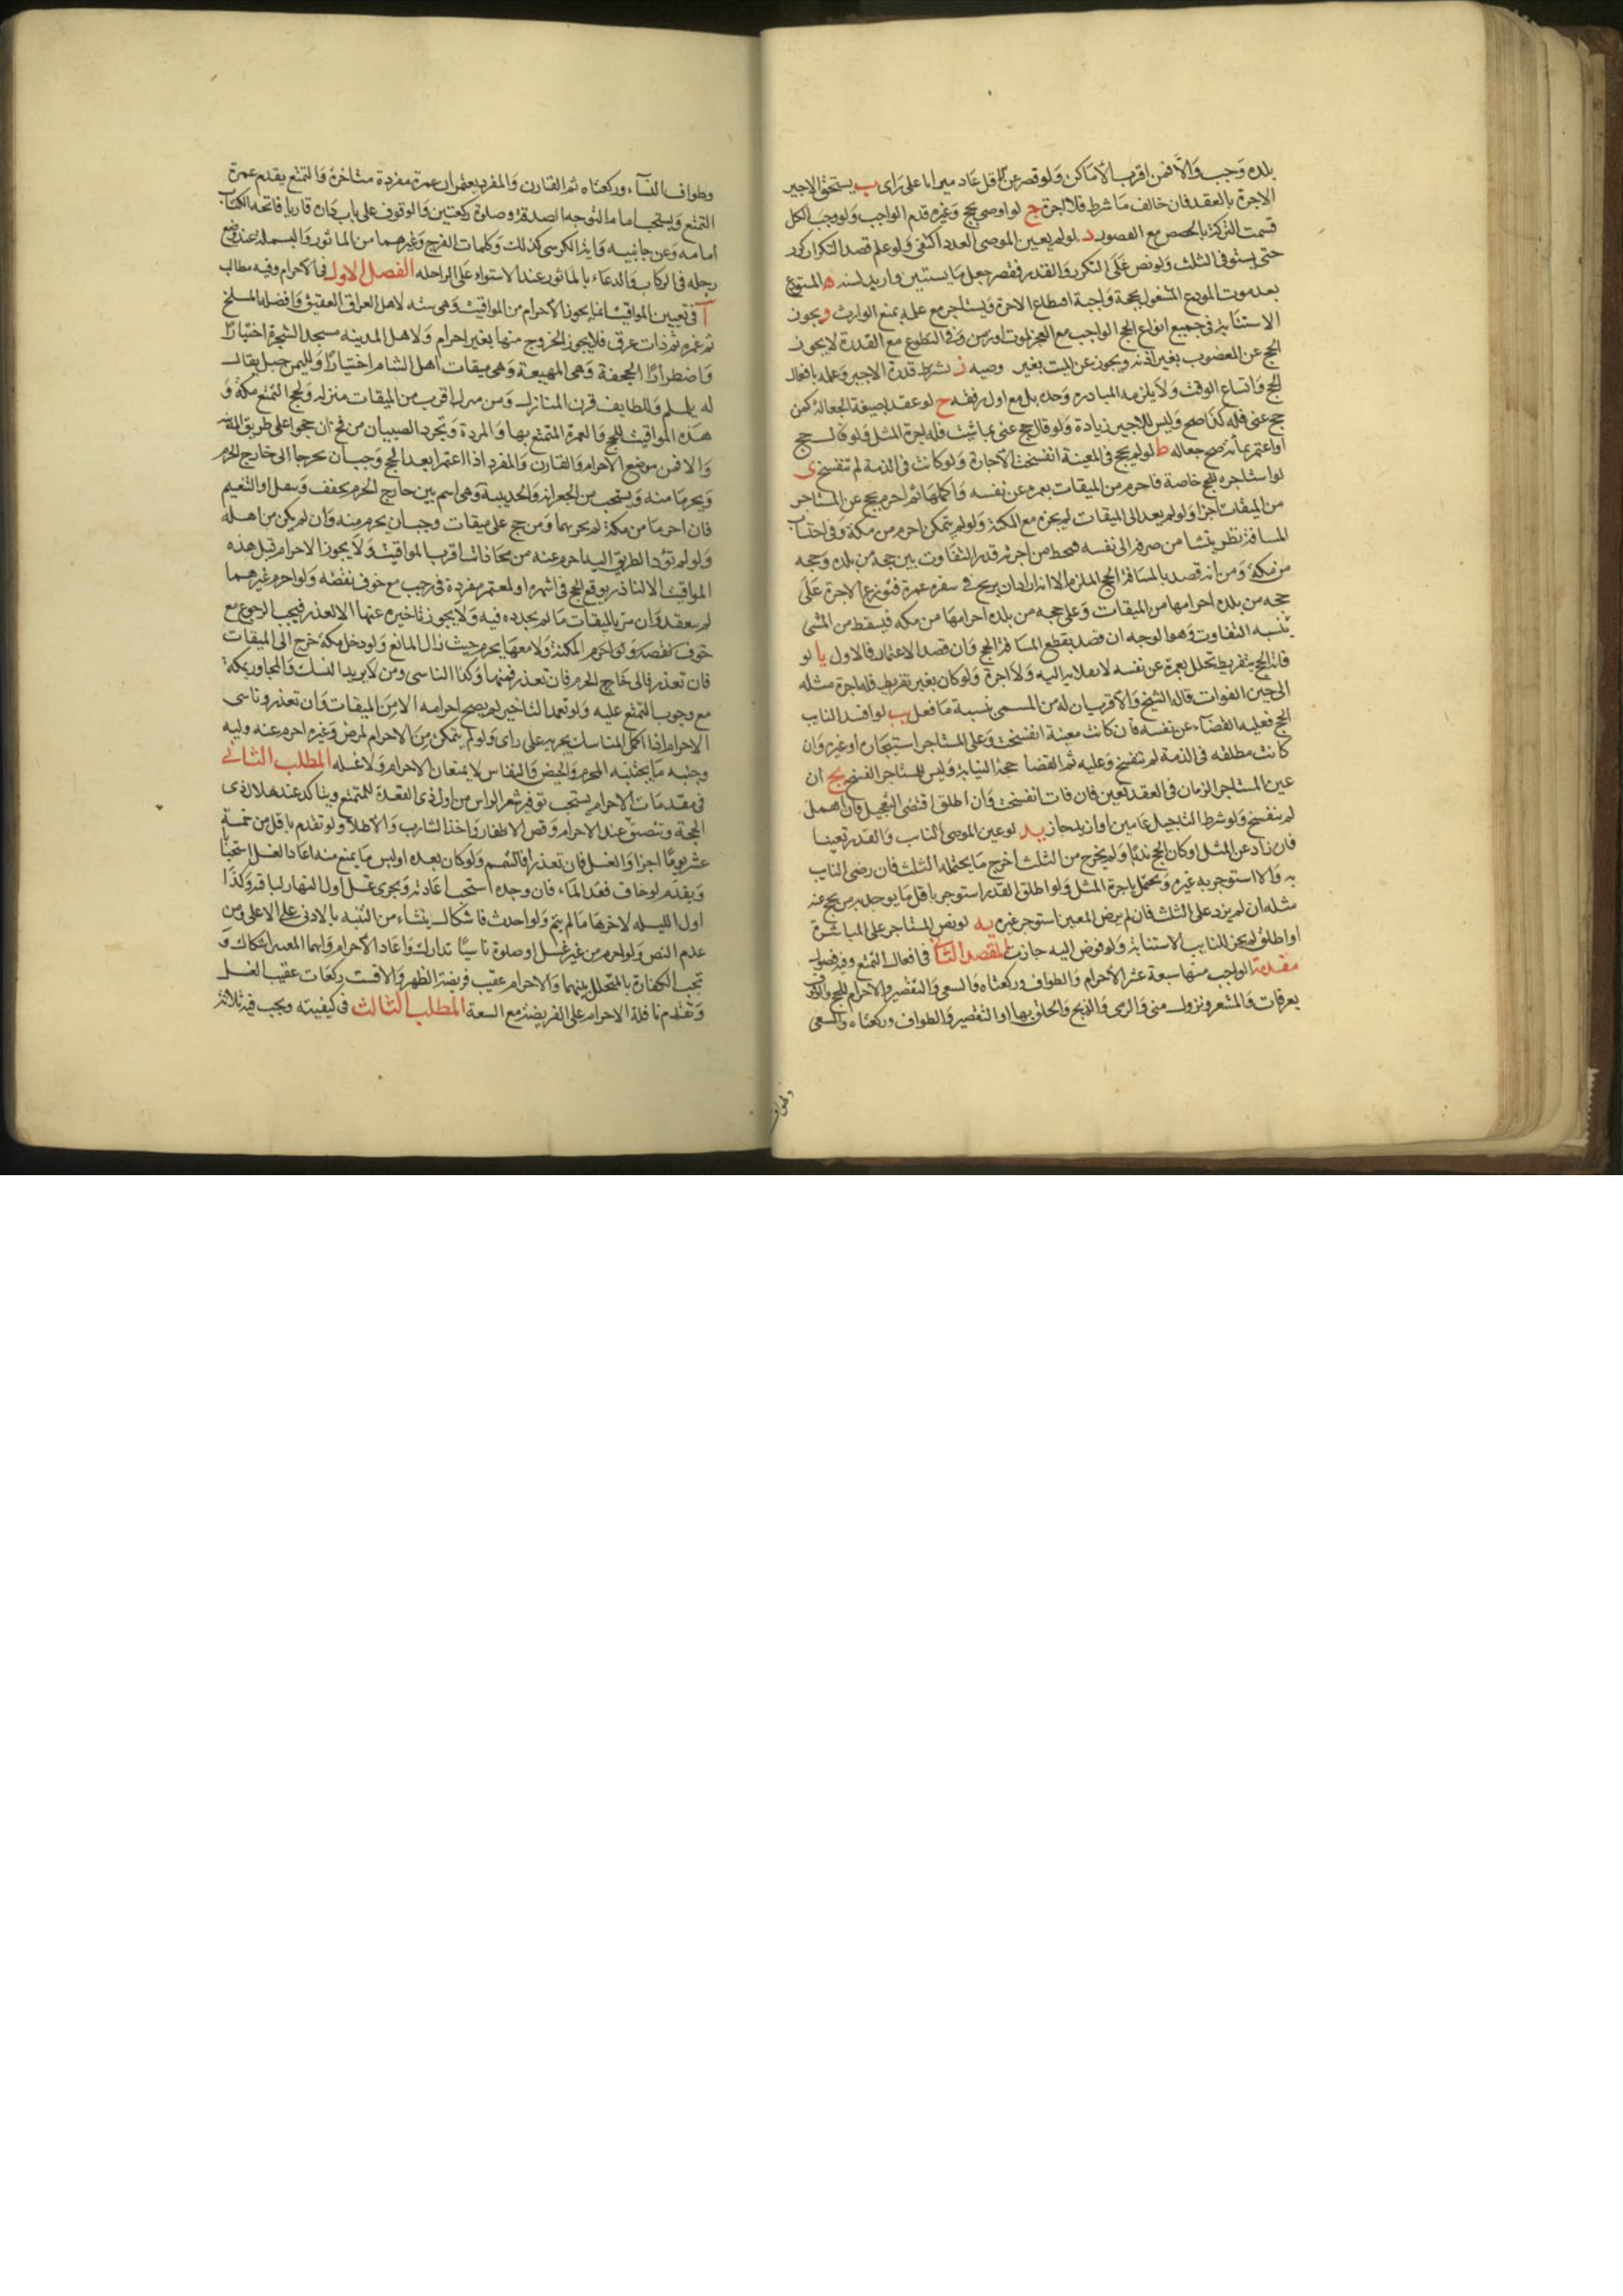 بلده وجب والا فمن اقرب الاماكن ولو قصر عن الاقل عاد ميراثا على راى ب يستحق الاجير
الاجرة بالعقد فان خالف ما شرط فلا اجرة ج لو اوصى بحج وغيره قدم الواجب ولو وجب الكل
قسمت التركة بالحصص مع القصور د لو لم يعين الموصى العدد اكتفى ولو علم قصد التكرار كرر
حتى يستوفى الثلث ولو نص على التكرر والقدر فقصر جعل ما لسنتين وازيد لسنه ه المستودع
بعد موت المودع المشغول بحجة واجبة اقتطاع الاجرة ويستاجر مع علمه بمنع الوارث و يجوز
الاستنابة فى جميع انواع الحج الواجب مع العجز لموت او زمن وفى التطوع مع القدرة لا يجوز
الحج عن المعضوب بغير اذنه ويجوز عن الميت بغير وصيه ز يشترط قدرة الاجير وعلمه بافعال
الحج واتساع الوقت ولا يلزمه المبادره وحده بل مع اول رفقه ح لو عقد بصيغة الجعالة كمن
حج عنى فله كذا صح وليس للاجير زيادة ولو قال حج عنى بما شئت فله اجرة المثل ولو قال حج
او اعتمر بمائه صح جعاله ط لو لم يحج فى المعينة انفسخت الاجارة ولو كانت فى الذمة لم تنفسخ ى
لو استاجره للحج خاصة فاحرم من الميقات بعمره عن نفسه واكملها ثم احرم بحج عن المستاجر
من الميقات اجزا ولو لم يعد الى الميقات لم يجزه مع المكنة ولو لم يتمكن احرم من مكة وفى احتساب
المسافة نظر ينشا من صرفه الى نفسه فيحط من اجرته قدر التفاوت بين حجه من بلده وحجه
من مكة ومن انه قصد بالمسافة الحج الملتزم الا انه اراد ان يربح فى سفره عمرة فتوزع الاجرة على
حجه من بلده احرامها من الميقات وعلى حجه من بلده احرامها من مكه فيسقط من المسمى
بنسبه التفاوت وهو الوجه ان قصد بقطع المسافة الحج وان قصد الاعتمار فالاول يا لو
فاته الحج بتفريط تحلل بعمرة عن نفسه لانقلابه اليه ولا اجرة ولو كان بغير تفريط فله اجرة مثله
الى حين الفوات قال الشيخ والاقرب ان له من المسمى نسبة ما فعل يب لو افسد النايب
الحج فعليه القضاء عن نفسه فان كانت معينة انفسخت وعلى المستاجر استيجاره او غيره وان
كانت مطلقه فى الذمة لم تنفسخ وعليه ثم القضا حجة النيابة وليس للمستاجر الفسخ يج ان
عين المستاجر الزمان فى العقد تعين فان فات انفسخت وان اطلق اقتضى التعجيل فان اهمل
لم ينفسخ ولو شرط التاجيل عامين او ازيد جاز يد لو عين الموصى النايب والقدر تعينا
فان زاد عن المثل او كان الحج ندبا ولم يخرج من الثلث اخرج ما يحتمله الثلث فان رضى النايب
به والا استوجر به غيره ويحتمل باجرة المثل ولو اطلق القدر استوجر باقل ما يوجد به من يحج عنه
مثله ان لم يزد على الثلث فان لم يرض المعين استوجر غيره يه لو نص المستاجر على المباشرة
او اطلق لم يجز للنايب الاستنابة ولو فوض اليه جازت المقصد الثانى فى افعال التمتع وفيه فصول
مقدمة الواجب منها سبعة عشر الاحرام والطواف وركعتاه والسعى والتقصير والاحرام للحج والوقوف
بعرفات والمشعر ونزول منى والرمى والذبح والحلق بها او التقصير والطواف وركعتاه والسعى
وطواف
وطواف النساء وركعتاه ثم القارن والمفرد يعتمران عمرة مفردة متاخرة والتمتع يقدم عمرة
التمتع ويستحب امام التوجه الصدقة وصلوة ركعتين والوقوف على باب داره قاريا فاتحة الكتاب
امامه وعن جانبيه واية الكرسى كذلك وكلمات الفرج وغيرهما من الماثور والبسملة عند وضع
رجله فى الركاب والدعاء بالماثور عند الاستواء على الراحله الفصل الاول فى الاحرام وفيه مطالب
آ فى تعيين المواقيت انما يجوز الاحرام من المواقيت وهى سته لاهل العراق العقيق وافضله المسلخ
ثم غمره ثم ذات عرق فلا يجوز الخروج منها بغير احرام ولاهل المدينه مسجد الشجرة اختيارا
واضطرارا الجحفة وهى المهيعة وهى ميقات اهل الشام اختيارا ولليمن جبل يقال
له يلملم وللطايف قرن المنازل ومن منزله اقرب من الميقات منزله ولحج التمتع مكة و
هذه المواقيت للحج والعمرة المتمتع بها والمفردة وتجرد الصبيان من فخ ان حجوا على طريق المدينة
والا فمن موضع الاحرام والقارن والمفرد اذا اعتمرا بعد الحج وجب ان يخرجا الى خارج الحرم
ويحرما منه ويستحب من الجعرانه والحديبية وهى اسم بير خارج الحرم تخفف وتثقل او التنعيم
فان احرما من مكة لم يجزيهما ومن حج على ميقات وجب ان يحرم منه وان لم يكن من اهله
ولو لم يؤد الطريق اليه احرم عند من محاذات اقرب المواقيت ولا يجوز الاحرام قبل هذه
المواقيت الا لناذر يوقع الحج فى اشهره او لمعتمر مفردة فى رجب مع خوف نقضه ولو احرم غيرهما
لم ينعقد وان مر بالميقات ما لم يجدده فيه ولا يجوز تاخيره عنها الا لعذر فيجب الرجوع مع
خوف نقصه ولو احرم المكنة ولا معها يحرم حيث زال المانع ولو دخل مكة خرج الى الميقات
فان تعذر فالى خارج الحرم فان تعذر فمنها وكذا الناسى ومن لا يريد النسك والمجاور بمكة
مع وجوب التمتع عليه ولو تعمد التاخير لم يصح احرامه الا من الميقات وان تعذر وناسى
الاحرام اذا اكمل المناسك يجزيه على راى ولو لم يتمكن من الاحرام لمرض وغيره احرم عنه وليه
وجنبه ما يجتنبه المحرم والحيض والنفاس لا يمنعان الاحرام ولا غسله المطلب الثانى
فى مقدمات الاحرام يستحب توفير شعر الراس من اول ذى القعدة للمتمتع ويتاكد عند هلال ذى
الحجة وتنصف عند الاحرام وقص الاظفار واخذ الشارب والاطلا ولو تقدم باقل من خمسة
عشر يوما اجزا والغسل فان تعذر فالتيمم ولو كان بعده او لبس ما يمنع منه اعاد الغسل استحبابا
ويقدم لو خاف فقد الماء فان وجده استحب اعادته ويجزى غسل اول النهار لباقيه وكذا
اول الليله لاخرها ما لم ينم ولو احدث فاشكال ينشاء من التنبه بالادنى على الاعلى ومن
عدم النص ولو احرم من غير غسل او صلوة ناسيا تدارك واعاد الاحرام وايهما المعتبر اشكال و
تجب الكفارة بالمتخلل بينهما والاحرام عقيب فريضة الظهر والا فست ركعات عقيب الغسل
وتقدم نافلة الاحرام على الفريضة مع السعة المطلب الثالث فى كيفيته ويجب فيه ثلاثة